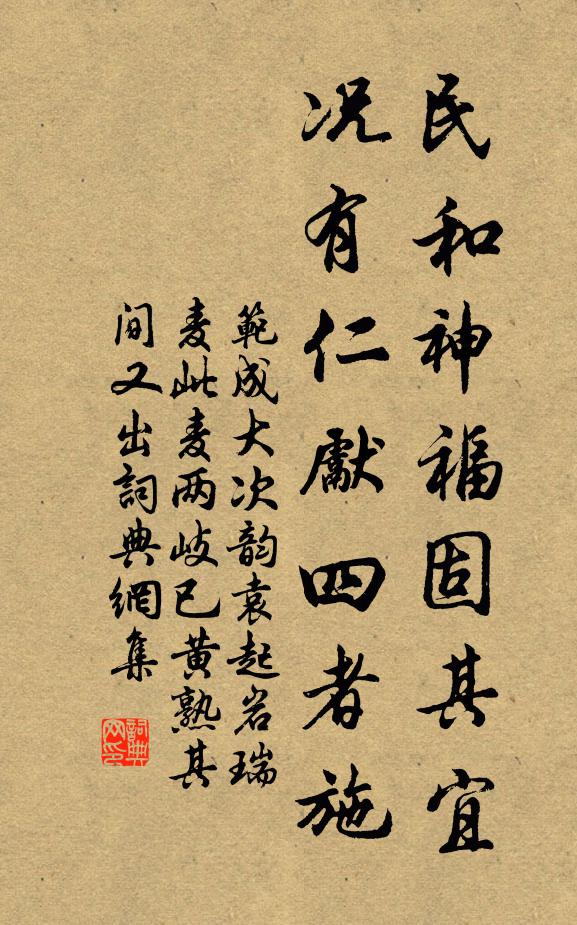 民和神福固其宜
况有仁獻四者施
範成大次韵袁起岩瑞
麦此麦两岐已黄熟其
间又出詞典網集
詞典网印